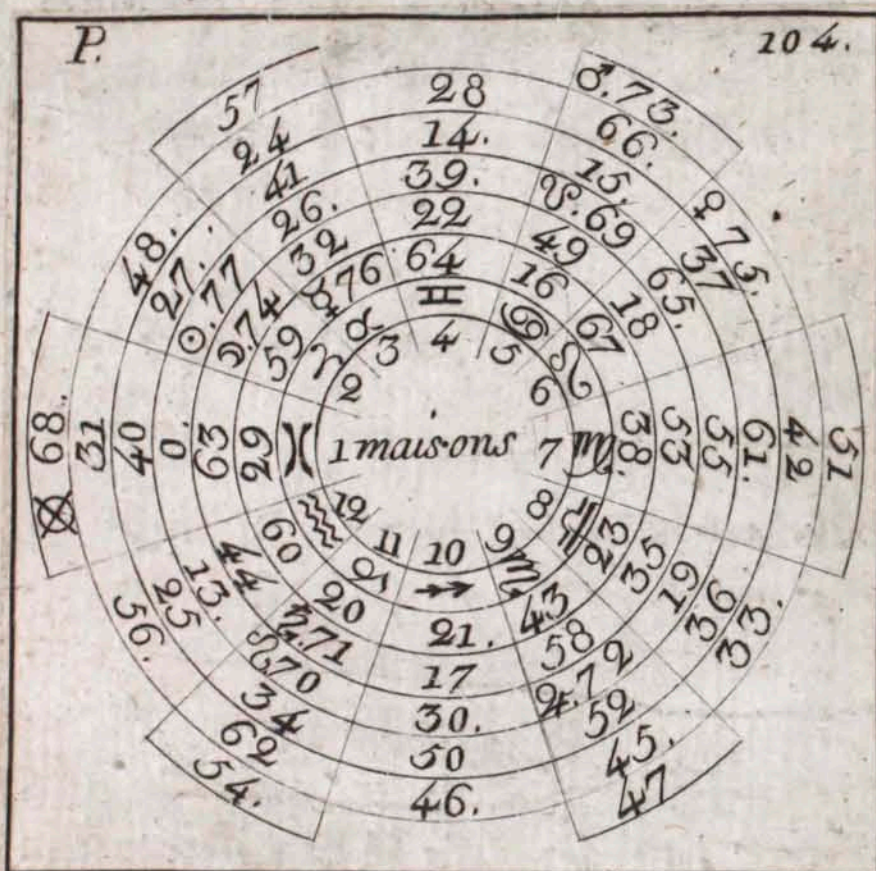 P.
104.
57
24
41
26.
32
☿76
♉
3
28
14.
39.
22
64
♊
4
♂.73.
66.
15.
☋.69
49
16
♋
5
♀75.
37
65.
18
67
♌
6
51
42
61.
55
53
38.
♍
7
33.
36
19
35
23
♎
8
47
45.
52
♃.72
58
43
♏
9
46.
50
30.
17
21.
♐
10
54.
62
34
☊70
♄.71
20
♑
11
56.
25
13.
44
60
♒
12
⊗ 68.
31
40
0.
63
29
♓
1 maisons
48.
27.
☉.77
☽.74
59
♈
2